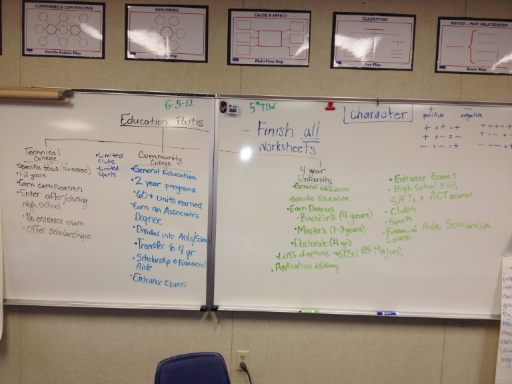 COMPARING & CONTRASTING
Double Bubble Map
SEQUENCING
Flow Map
CAUSE & EFFECT
Multi-Flow Map
CLASSIFYING
Tree Map
WHOLE - PART RELATIONSHIP
Brace Map
6-5-12
Education Paths
Technical College
• Specific focus
• 1-2 years
• Earn certification
• Enter after/during
high school
• No entrance exam
• Offer scholarships
• Limited
Clubs
• Limited
Sports
Community
College
• General Education
• 2 year programs
• 60+ units earned
• Earn an Associate's
Degree
• Divided into Arts/
• Transfer to 4 yr
• Scholarship & Financial
Aide
• Entrance Exams
5th
Finish all
Worksheets
4 year
University
• General Education
• Specific Education
• Earn Degrees
• Bachelor's (4 years)
• Master's (1-3 years)
• Doctorate (4 yr)
• Lots of options
• Application & Essay
• Entrance Exams
• High School
SATs & ACT scores
• Clubs
• Sports
• Financial Aide, Scholarships
Loans
Character
+
positive
-
negative